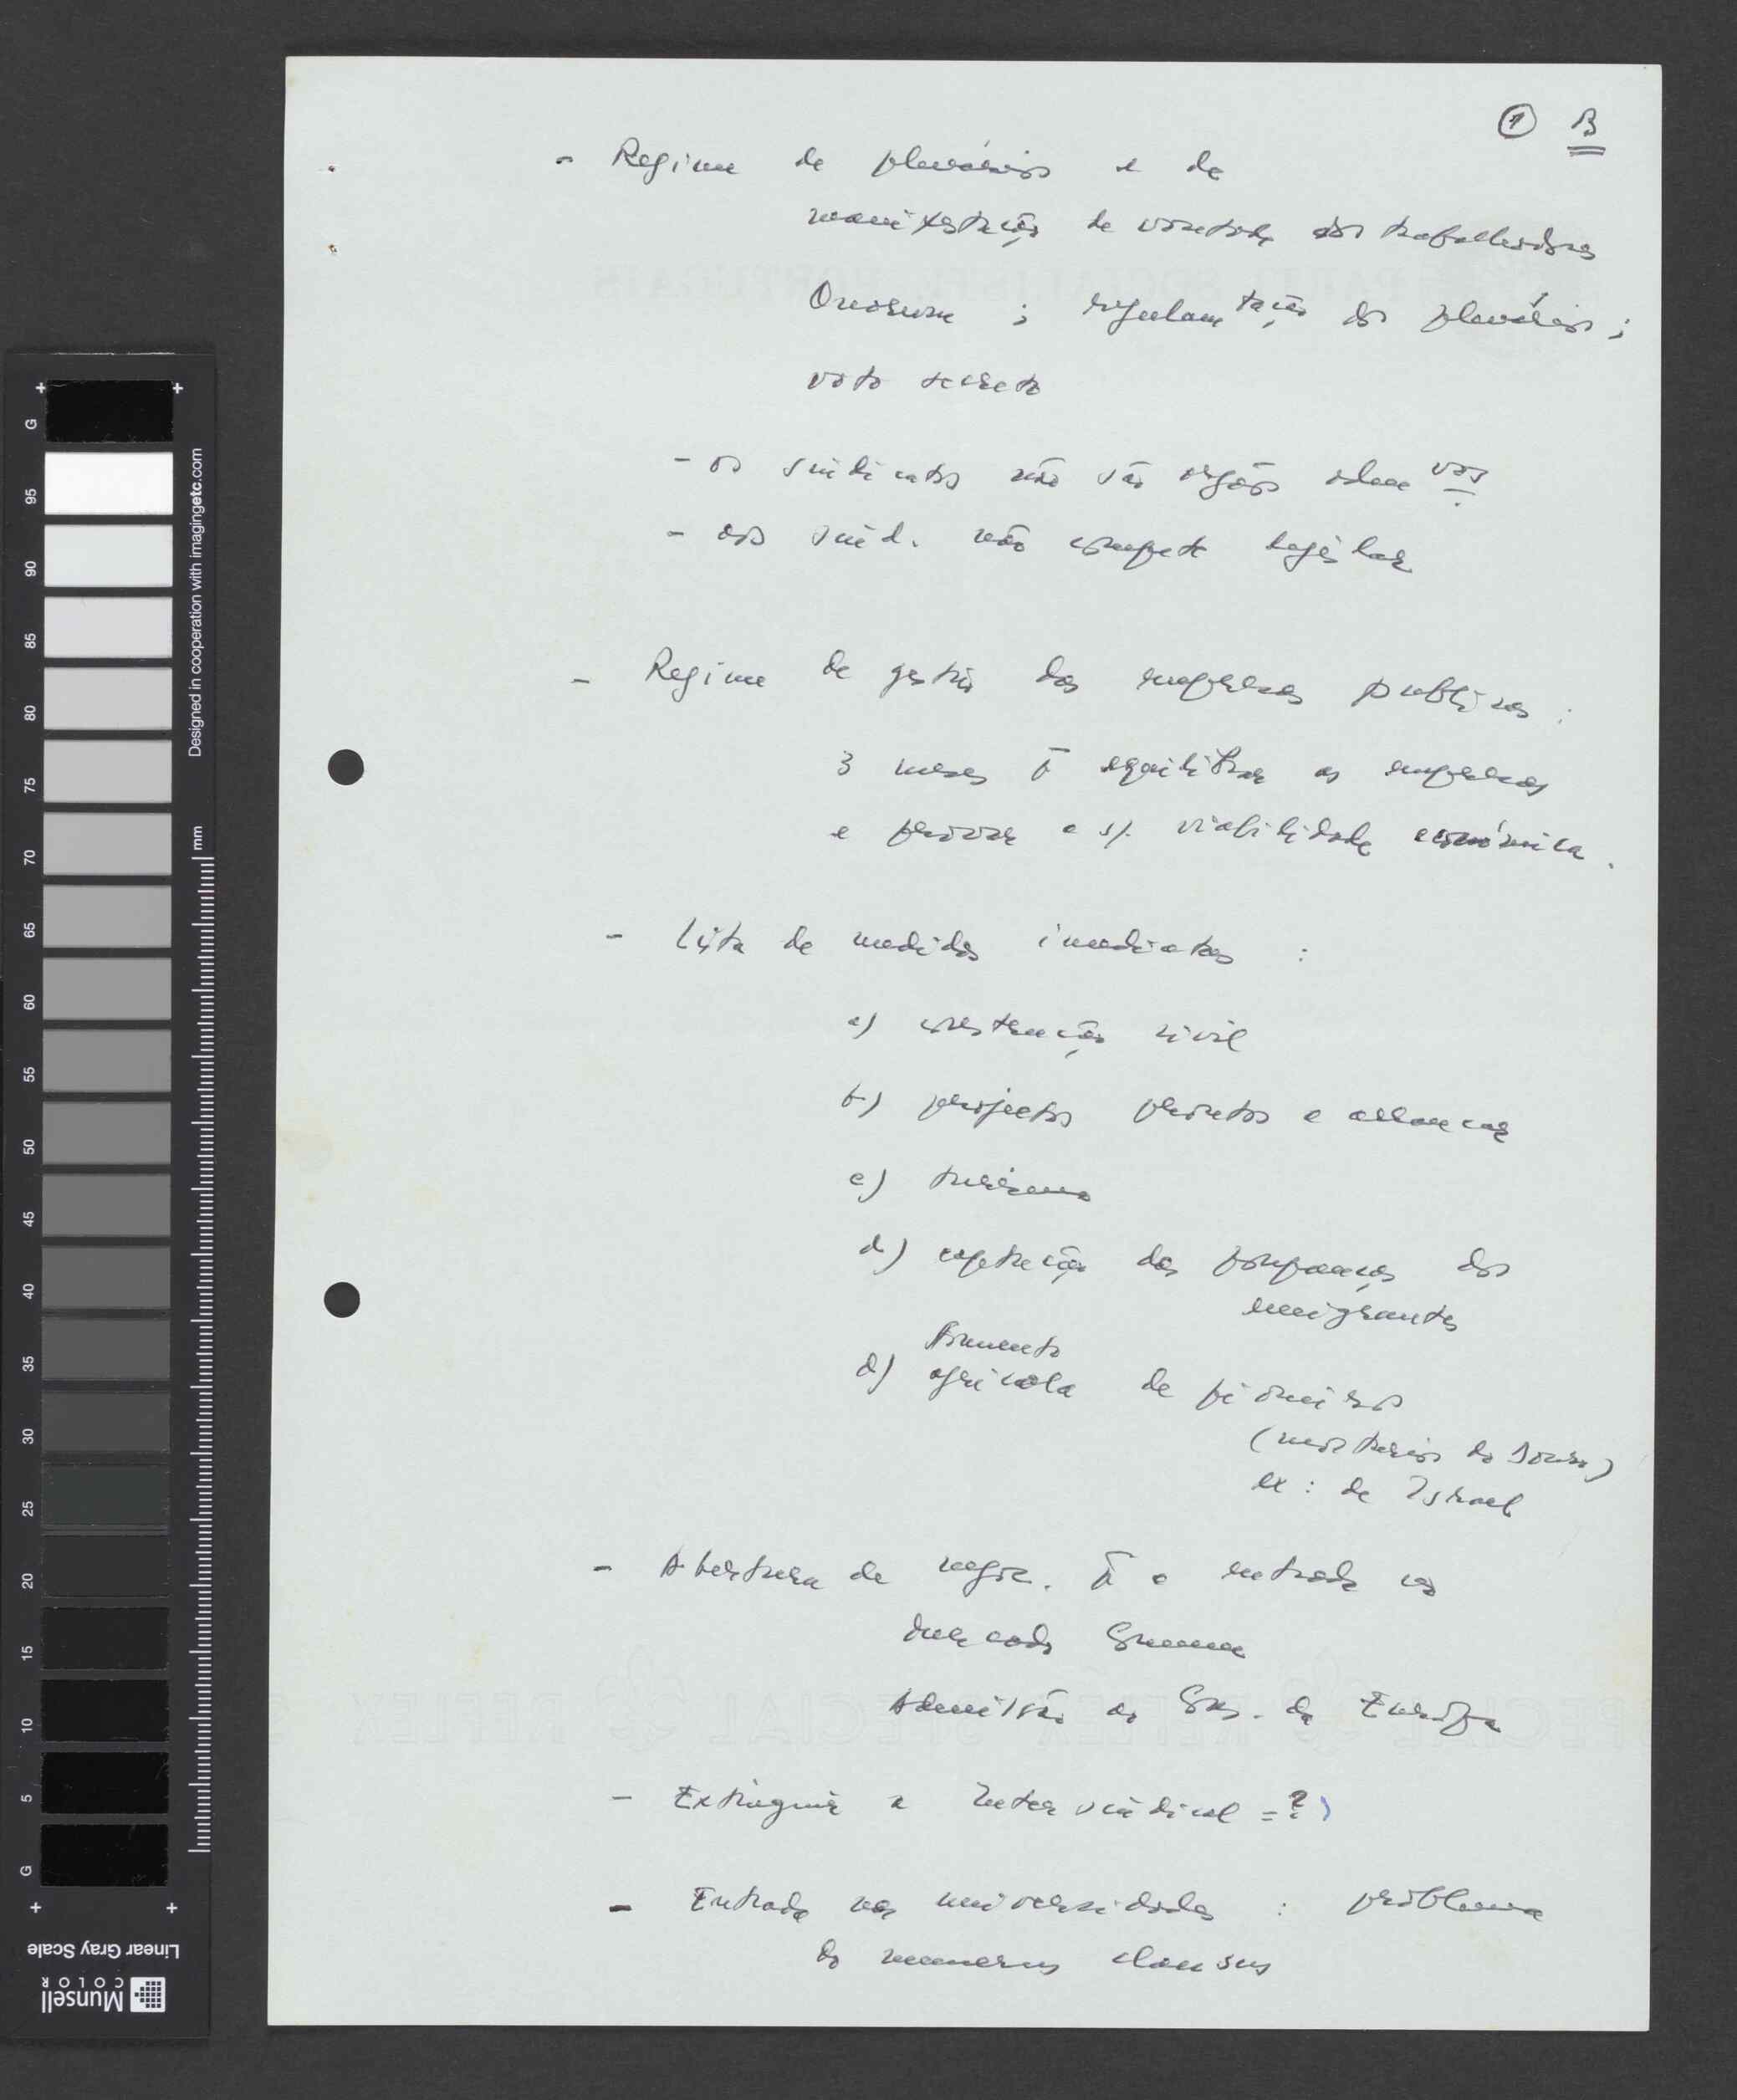 ① B
- Regime de plenários e de
manifestação de vontade dos trabalhadores
Quorum ; regulamentação dos plenários ;
voto secreto
- os sindicatos não são orgãos
- aos sind. não compete legislar
- Regime de gestão das empresas publicas :
3 meses p̄ equilibrar as empresas
e provar a s/. viabilidade económica.
- Lista de medidas imediatas :
a) construção civil
b) projectos prontos a arrancar
c) turismo
d) captação das poupanças dos
emigrantes
Fomento
d) agricola de pioneiros
( do Douro)
ex : de Israel
- Abertura de negoc. p̄ a entrada no
Mercado Comum
Admissão ao Cons. da Europa
- Extinguir a Intersindical = ?)
- Entrada nas universidades : problema
do numerus clausus
PARTI SOCIALISTE PORTUGAIS
SPECIAL REFLEX SPECIAL REFLEX
G 95 90 85 80 75 70 65 60 55 50 45 40 35 30 25 20 15 10 5 G
Designed in cooperation with imagingetc.com
mm
Linear Gray Scale
Munsell
COLOR